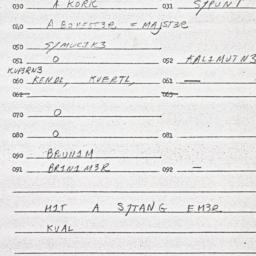 030 A KORK 031 SJPUNT
040 A EQVETTER = MAJSTER
050 SJMUCIK3
051 0 052 KALIMUTN3
KUPJRN3
060 KENDL, KVERTL, 061 —
062 063
070 0
080 0 081
090 BRUNJM
091 BRINJMER 092 —
HIT A SJTANG EM3R
KVAL